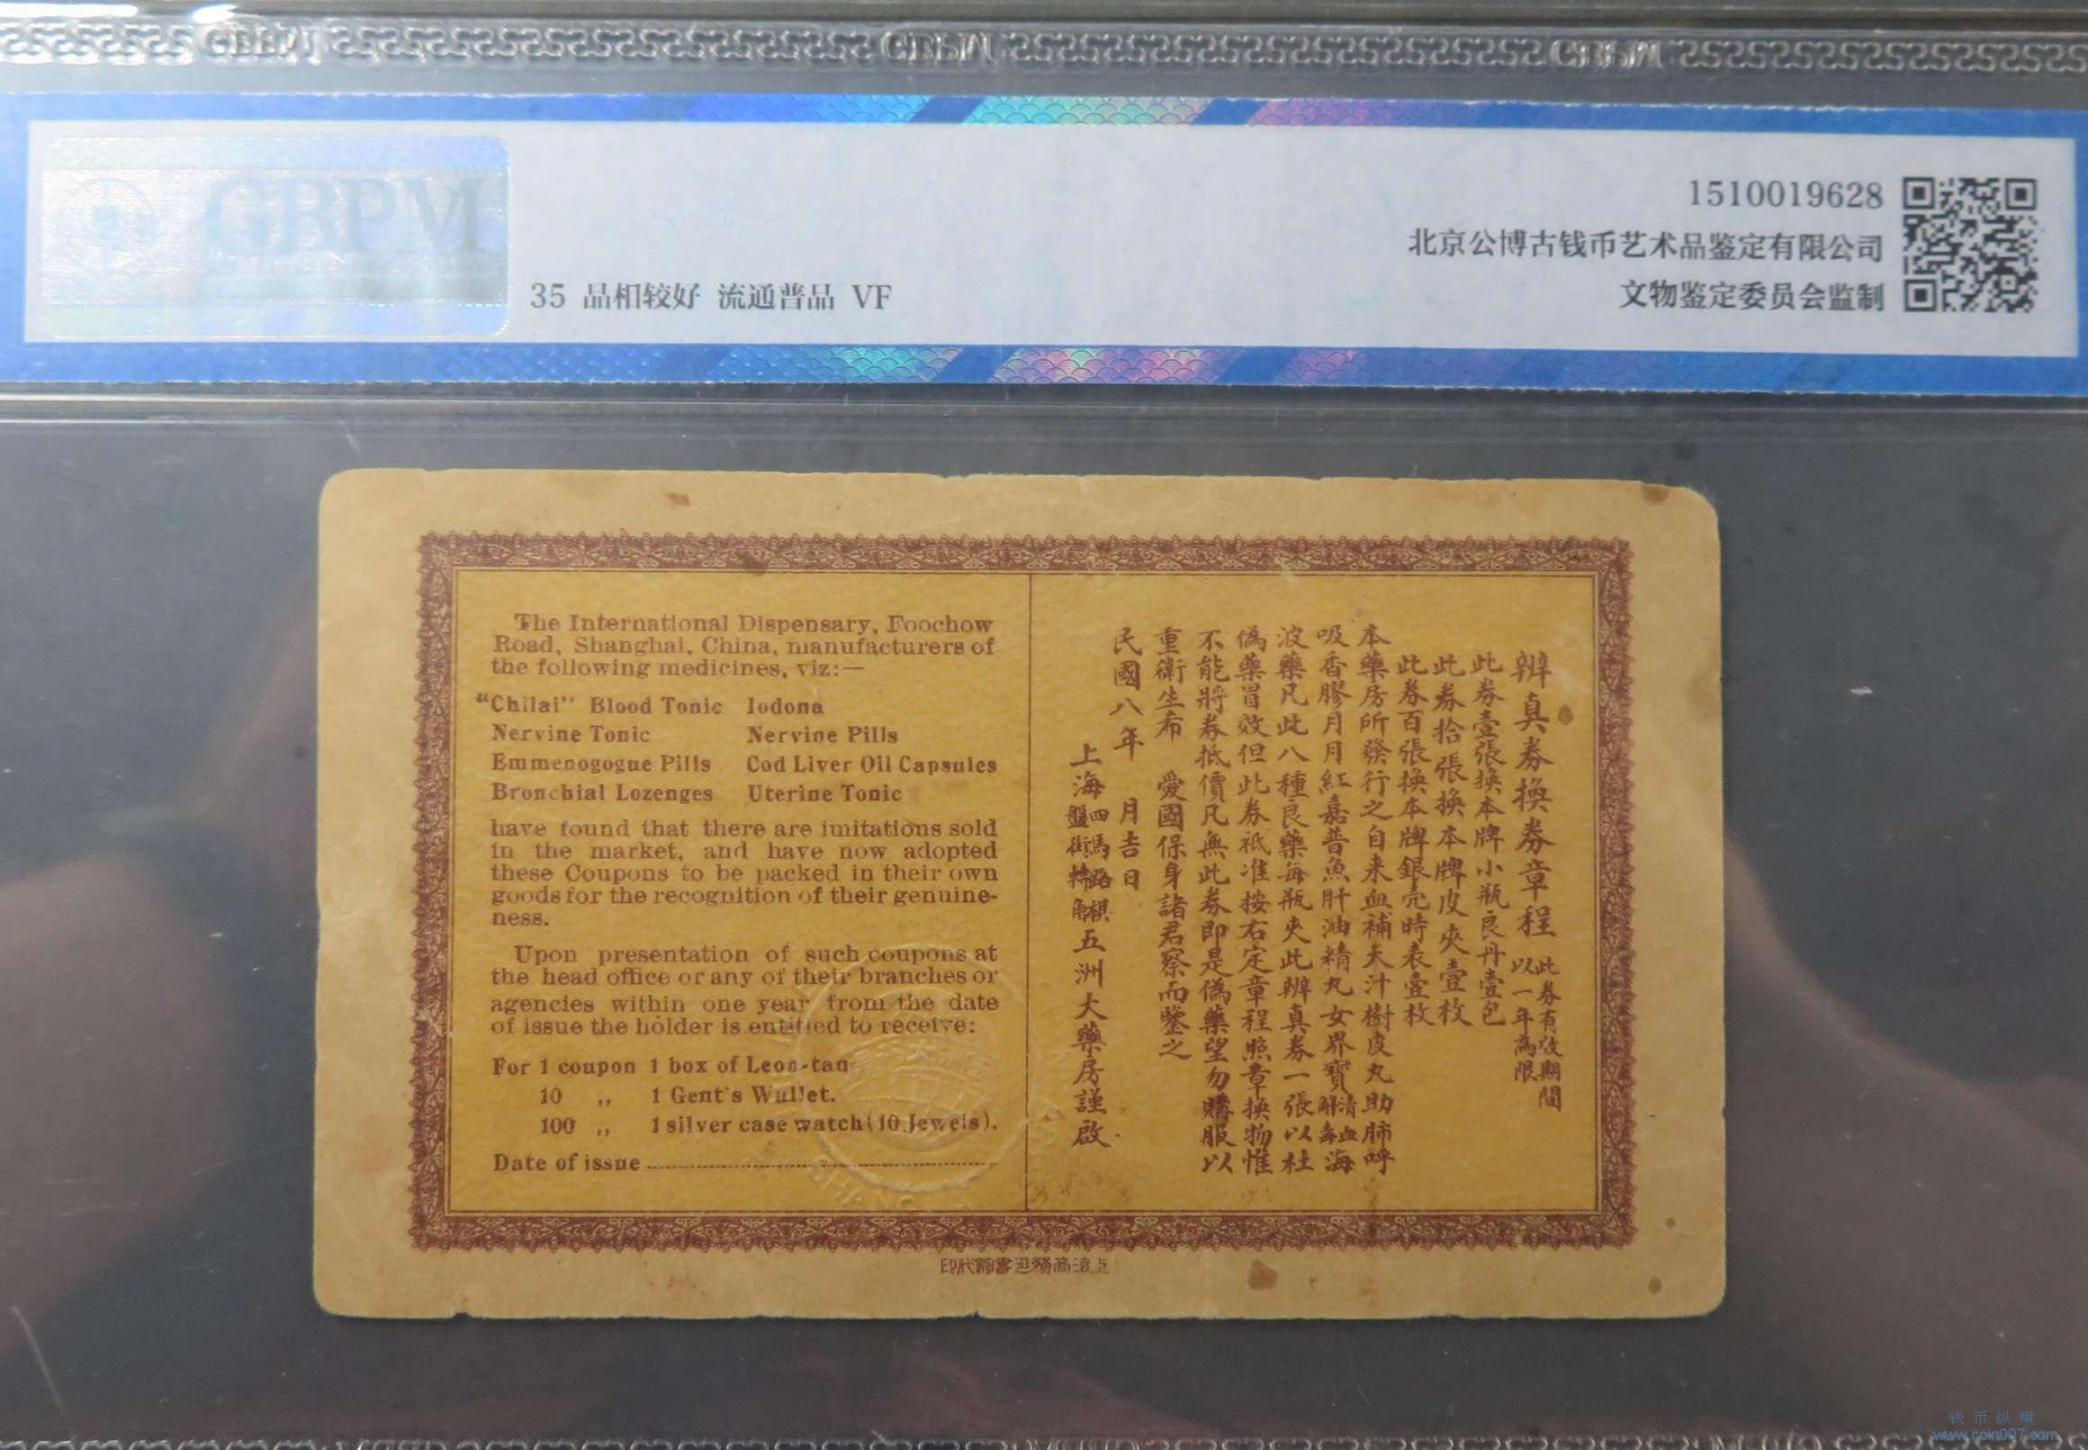 GBPM
GBPM
GBPM
GBPM
35 品相较好 流通普品 VF
1510019628
北京公博古钱币艺术品鉴定有限公司
文物鉴定委员会监制
The International Dispensary, Foochow
Road, Shanghai, China, manufacturers of
the following medicines, viz:—
"Chilai" Blood Tonic Iodona
Nervine Tonic Nervine Pills
Emmenogogue Pills Cod Liver Oil Capsules
Bronchial Lozenges Uterine Tonic
have found that there are imitations sold
in the market, and have now adopted
these Coupons to be packed in their own
goods for the recognition of their genuine-
ness.
Upon presentation of such coupons at
the head office or any of their branches or
agencies within one year from the date
of issue the holder is entitled to receive:
For 1 coupon 1 box of Leon-tan
10 ,, 1 Gent's Wallet.
100 ,, 1 silver case watch (10 Jewels).
Date of issue
辨真券換券章程 此券有效期間以一年為限
此券壹張換本牌小瓶良丹壹包
此券拾張換本牌皮夾壹枚
此券百張換本牌銀壳時表壹枚
本藥房所發行之自来血補天汁樹皮丸助肺呼
吸香膠月月紅嘉普魚肝油精丸女界寶清血解毒海
波藥凡此八種良藥每瓶夾此辨真券一張以杜
偽藥冒效但此券祗准按右定章程照章換物惟
不能將券抵價凡無此券即是偽藥望勿購服以
重衛生布 愛國保身諸君察而鑒之
民國八年 月吉日
上海四馬路棋盤街轉角五洲大藥房謹啟
上海商務印書館代印
钱币纵横
www.coin007.com